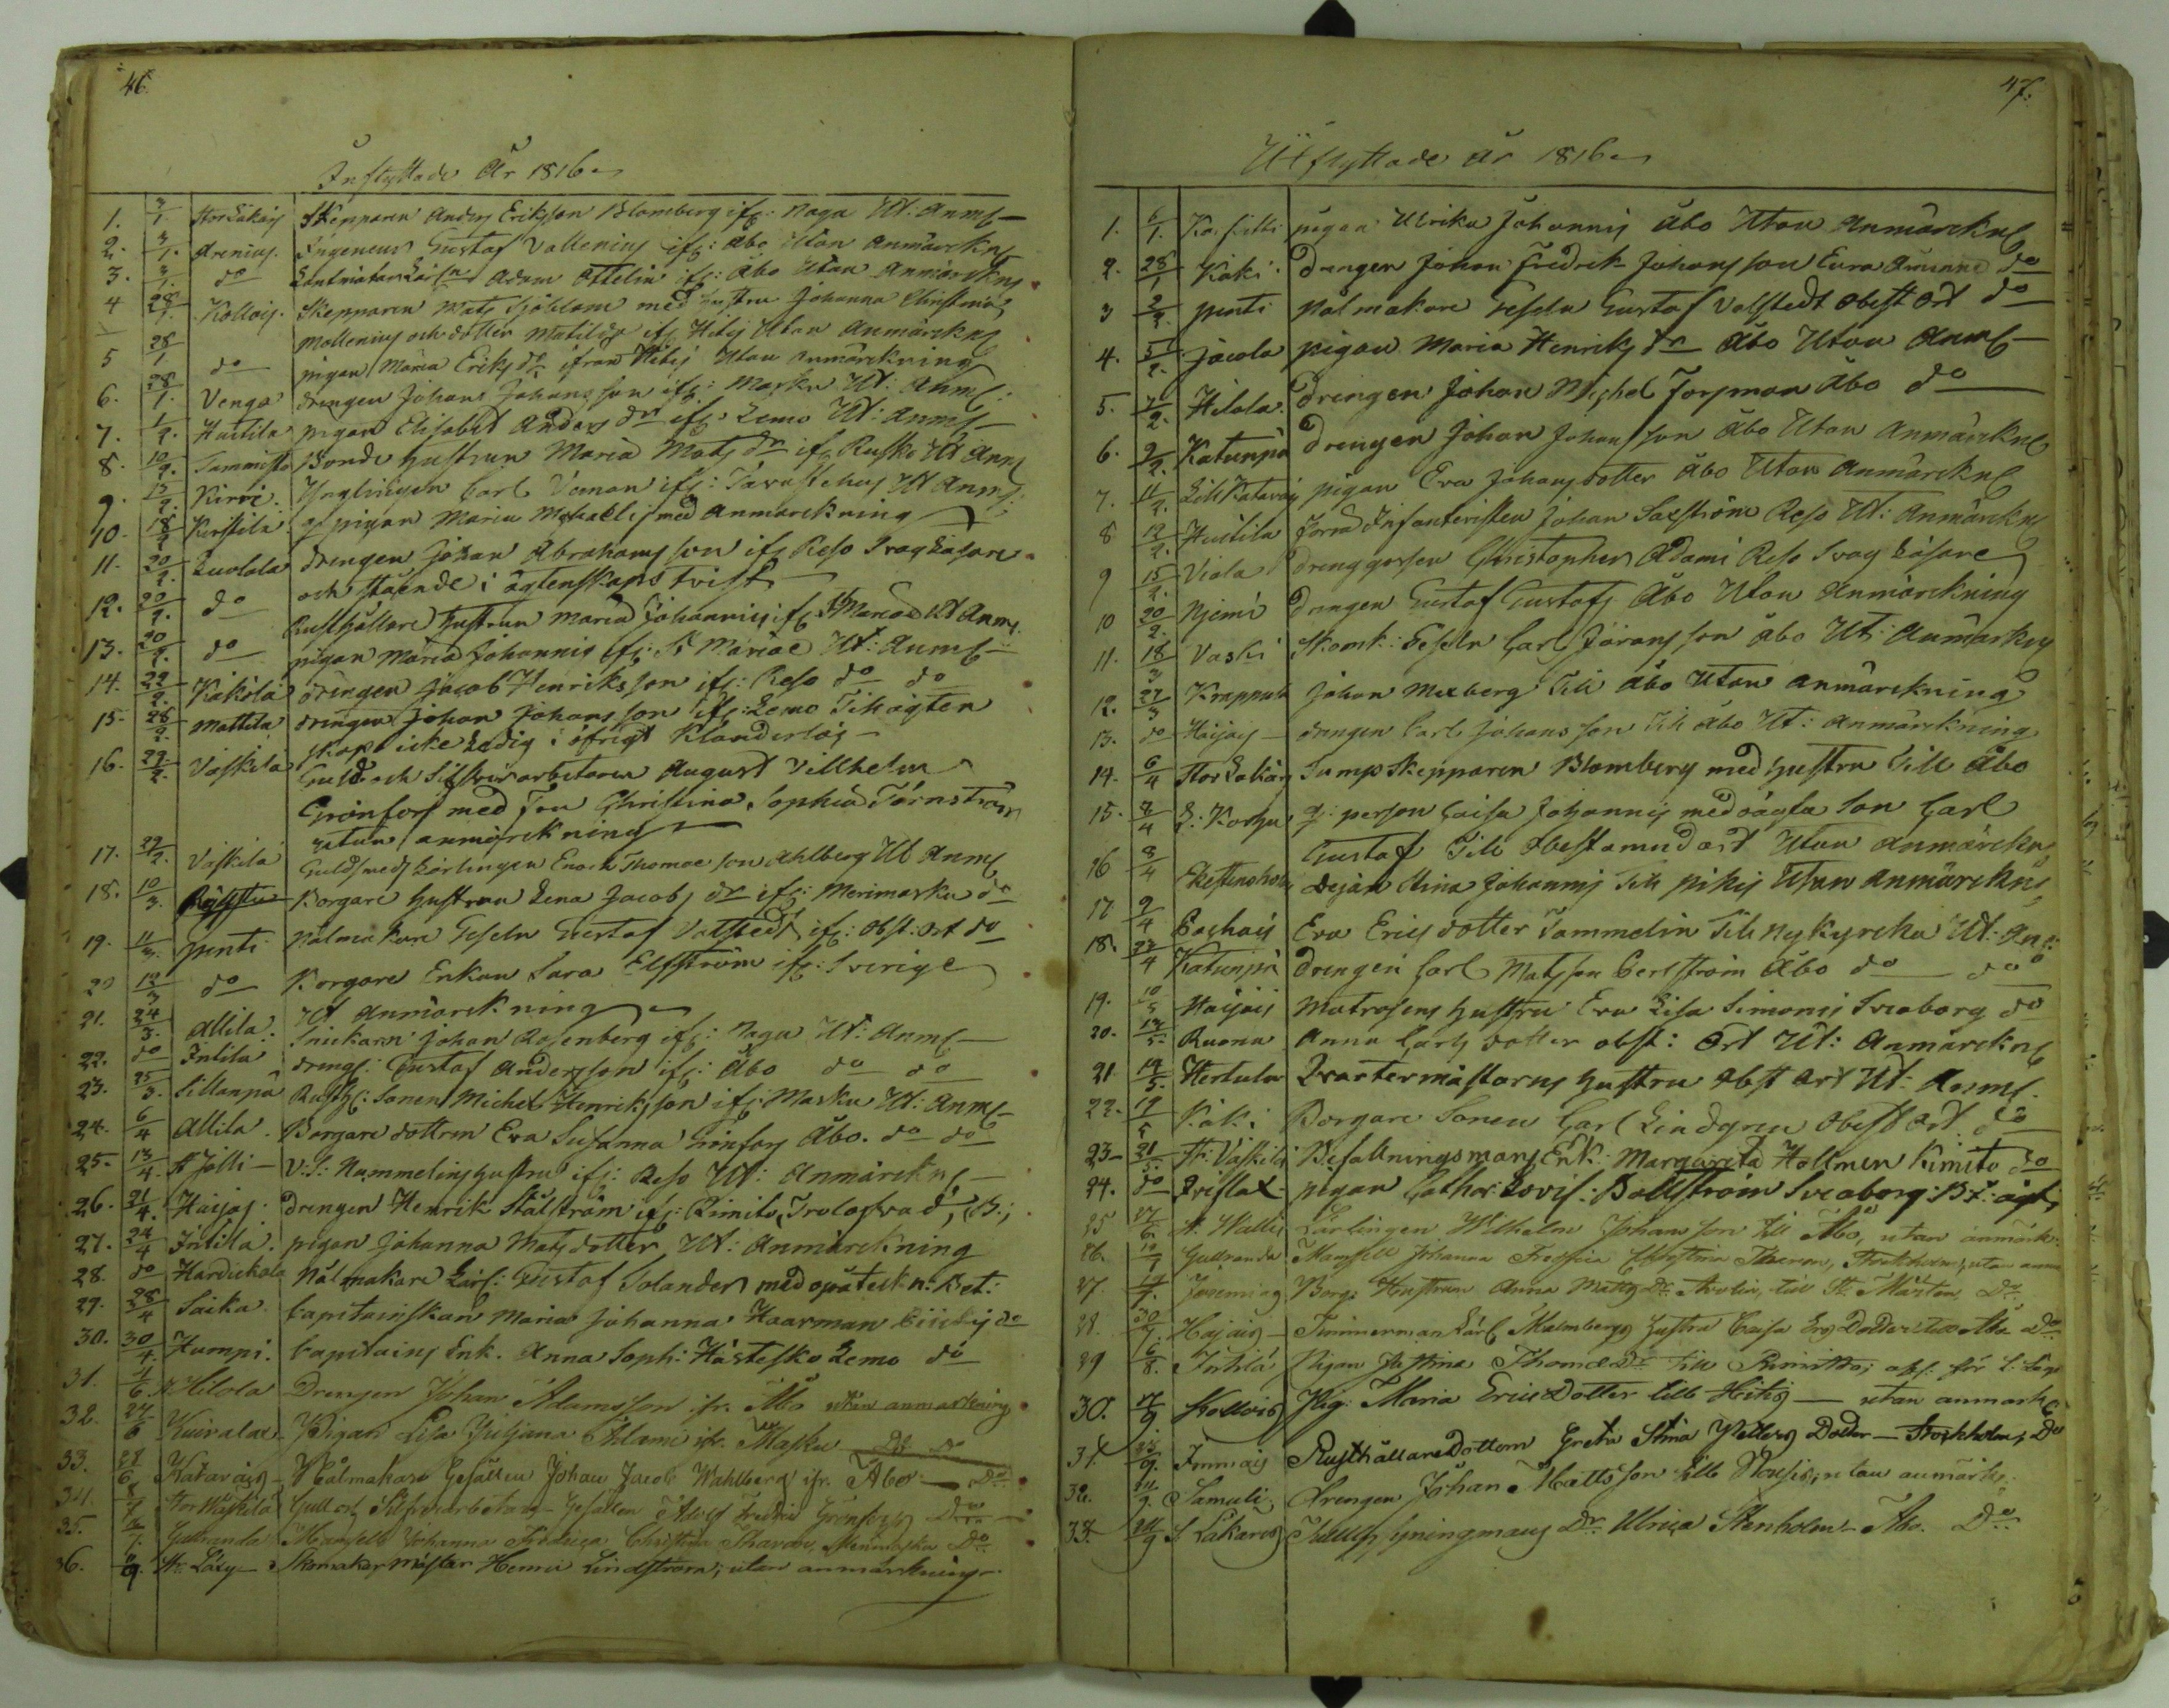 46.
Inflyttade År 1816
1. 3/1. StorLäkäis Skepparen Anders Eriksson Blomberg ifr: Nagu Ut. Anm:
2. 3/1. Arenius. Ingeneur Gustaf Vallenius ifr: Åbo Utan Anmärckn:
3. 3/1. do Adam Ottelin ifr: Åbo Utan Anmärckn:
4 28/1. Kollois. Skepparen Mats Sjöblom med hustru Johanna Christina
Mollenius och dotter Matilda ifr Hitis Utan Anmärckn:
5 28/1 do pigan Maria Eriks dr ifrån Hitis Utan Anmärckning
6. 28/1. Venga drengen Johans Johansson ifr: Masku Ut: Anm:
7. 1/2. Huttila pigan Elisabet Anders dr ifr: Lemo Ut: Anm:
8. 10/2. Tammisto Bonde hustrun Maria Mats dr ifr Rusko Ut Anm
9. 15/2. Kirvi. Ynglingen Carl Veman ifr: Tavastehus Ut Anm:
10. 18/2 Kerttila q. pigan Maria Michaelis med Anmärckning
11. 20/2. Luolala drengen Johan Abrahamsson ifr Reso Svag Läsare
och stående i ägtenskaps tvist
12. 20/2. do Rusthållare hustrun Maria Johannis ifr St Mariae Ut Anm:
13. 20/2. do pigan Maria Johannis ifr: St Mariae Ut: Anm:
14. 22/2. Kakola drengen Jacob Henriksson ifr: Reso do do
15. 28/2. Mattila drengen Johan Johansson ifr: Lemo Til ägten
skap icke Ledig i öfrigt Klanderlös
16. 29/2. Vaskila Guld och Silfverarbetaren August Villhelm
Grönfors med Fru Christina Sophia Törnström
utan anmärckning
17. 29/2. Vaskila Guldsmeds Lärlingen Enoch Thomae son Ahlberg Ut Anm:
18. 10/3. Borgare hustrun Lena Jacobs dr ifr: Merimasku do
19. 11/3. Penti Nålmakare Geseln Gustaf Valstedt ifr: Obst: Ort do
20 12/3 do Borgare Enkan Sara Elfström ifr: Sverige
Ut Anmärckning
21. 24/3. Allila. Snickaren Johan Rosenberg ifr: Nagu Ut: Anm:
22. do Intila drengs: Gustaf Andersson ifr: Åbo do do
23. 25/3. Sillanpä Rusth: Sonen Michel Henriksson ifr: Masku Ut: Anm:
24. 6/4 Allila. Borgare dottren Eva Susanna Grönfors Åbo. do do
25. 13/4. St Jolli V: S: Nummelins hustru ifr: Reso Ut: Anmärckn:
26. 21/4. Haijas. drengen Henrik Stålström ifr: Rimito,
27. 24/4 Intila. pigan Johanna Mats dotter, Ut: Anmärckning
28. do Hardickala Nålmakare Lärl: Gustaf Solander med oparteckn: Bet:
29. 28/4 Saika. Capitainskan Maria Johanna Haarman do
30. 30/4. Kumpi. Capitains Enk. Anna Soph: Hästesko Lemo do
31. 1/6. Hilola Drengen Johan Adamsson ifr. Åbo utan anmärkning
32. 24/6 Kuiralax Pigan Lisa Juliana Adami ifr. Masku Do
33. 28/6 Katavais Nålmakare Gesällen Johan Jacob Wahlberg ifr. Åbo Do
34. 8/7 Stor Waskila Guld och Silfverarbetare Gesällen Adolf Fredric Grönfors Do
35. Gullranda Mamsell Johanna Fredrica Christina Merimasku Do
36. 9. St: Läky Skomakar mästar Henric Lindström; utan anmärkning
47.
Utflyttade år 1816
1. 6/1. Ka. pigan Ulrika Johannis Åbo Utan Anmärckn:
2. 28/1 Käki. drengen Johan Fredrik Johansson Eura Åminne do
3 2/2. Penti Nålmakare Geseln Gustaf Valstedt Obest Ort do
4. 5/2. Jacola pigan Maria Henriks dr Åbo Utan Anm:
5. 7/2. Hilola. drengen Johan Michel Forsman Åbo do
6. 9/2. Katunpä drengen Johan Johansson Åbo Utan Anmärckn:
7. 11/2. Lill Katavais pigan Eva Johans dotter Åbo Utan Anmärckn:
8 12/2. Huitila Förra Infanteristen Johan Saxström Reso Ut: Anmärckn:
9 15/2. Viala drenggossen Christopher Adami Reso Svag Läsare
10 20/2. Njemi drengen Gustaf Gustafs Åbo Utan Anmärckning
11. 18/3 Vaski Skomk: Geseln Carl Göransson Åbo Ut: Anmärckn:
12. 27/3 Krappula Johan Maxberg Till Åbo Utan anmärckning
13. do Haijais drengen Carl Johansson Till Åbo Ut: anmärckning
14. 6/4 Stor Lakäis Sump Skepparen Blomberg med hustru Till Åbo
15. 7/4 L: Korhu q: person Caisa Johannis med oägta Son Carl
Gustaf Till Obestämd ort Utan anmärckn:
16 8/4 dejan Stina Johannis Till Pikis Utan anmärckn:
17 9/4 Eva Erics dotter Tammelin Till Nykyrcka Ut: An:
18. 23/4 Katunpä drengen Carl Matsson Cerlström Åbo do do
19. 10/5 Haijais Matrosens hustru Eva Lisa Simons Sveaborg do
20. 14/5. Ruona Anna Carls dotter obst: Ort Ut: Anmärckn:
21 14/5. Hertula Qvartermästarens hustru Obst Ort Ut: Anm:
22. 19/5 Käki Borgare Sonen Carl Lindgren Obest Ort do
23 21/5. St: Vaskila Befallningsmans Enk: Margareta Hollmen Kimito do
24. do Frislax pigan Cathar: Lovis: Böllström Sveaborg:
25 27/6. St. Wallis Lärlingen Wilhelm Johansson till Åbo, utan anmärk:
26. Gullranda Mamsell Johanna Stockholm; utan anm
27. Borg: Hustrun Anna Matts Dr till St: Mårten Do
28. 30/7. Hajais Timmerman Lärl Malmbergs hustru Caisa Dotter till Åbo Do
29 6/8. Intilä Pigan Justina Thomae Dr till Rimitto;
30. 17/9 Kollois Pig: Maria Erics Dotter till Hitis utan anmärk
31. 9. Immais Rusthållare Dottern Greta Stina Petters Dotter Stockholm; Do
32. 9. Samuli. Drengen Johan Mattsson till Nousis; utan anmärk:
33. 24/9 S Läkäris Dr Ulrica Stenholm Åbo. Do